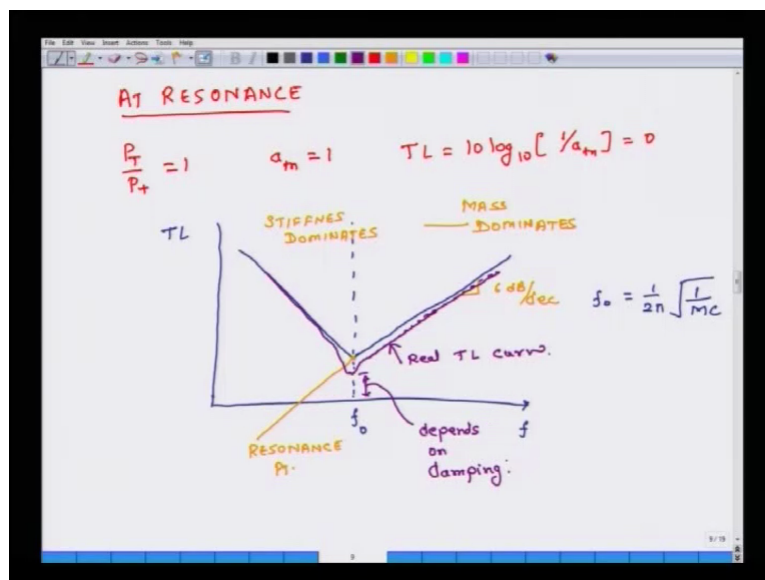 File Edit View Insert Actions Tools Help
AT RESONANCE
P_T/P_+ = 1 a_tn = 1 TL = 10 log_10 [ 1/a_tn ] = 0
TL
STIFFNES DOMINATES
MASS DOMINATES
6 dB/dec
f_0 = 1/2π √(1/MC)
Real TL curve.
f_0
f
RESONANCE Pt.
depends on damping.
9/19
9